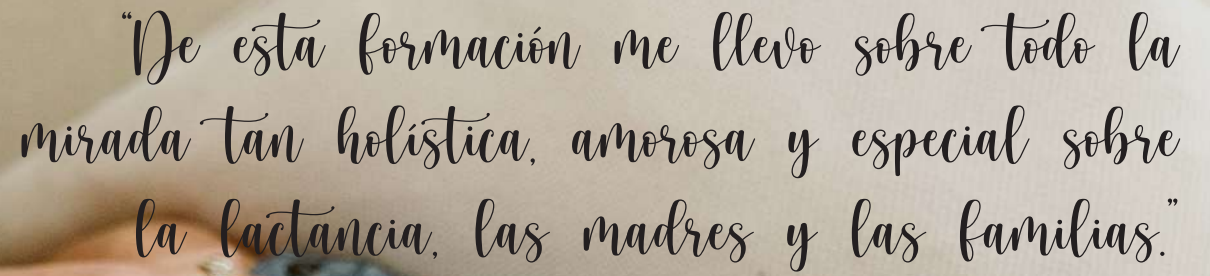 “De esta formación me llevo sobre todo la
mirada tan holística, amorosa y especial sobre
la lactancia, las madres y las familias.”